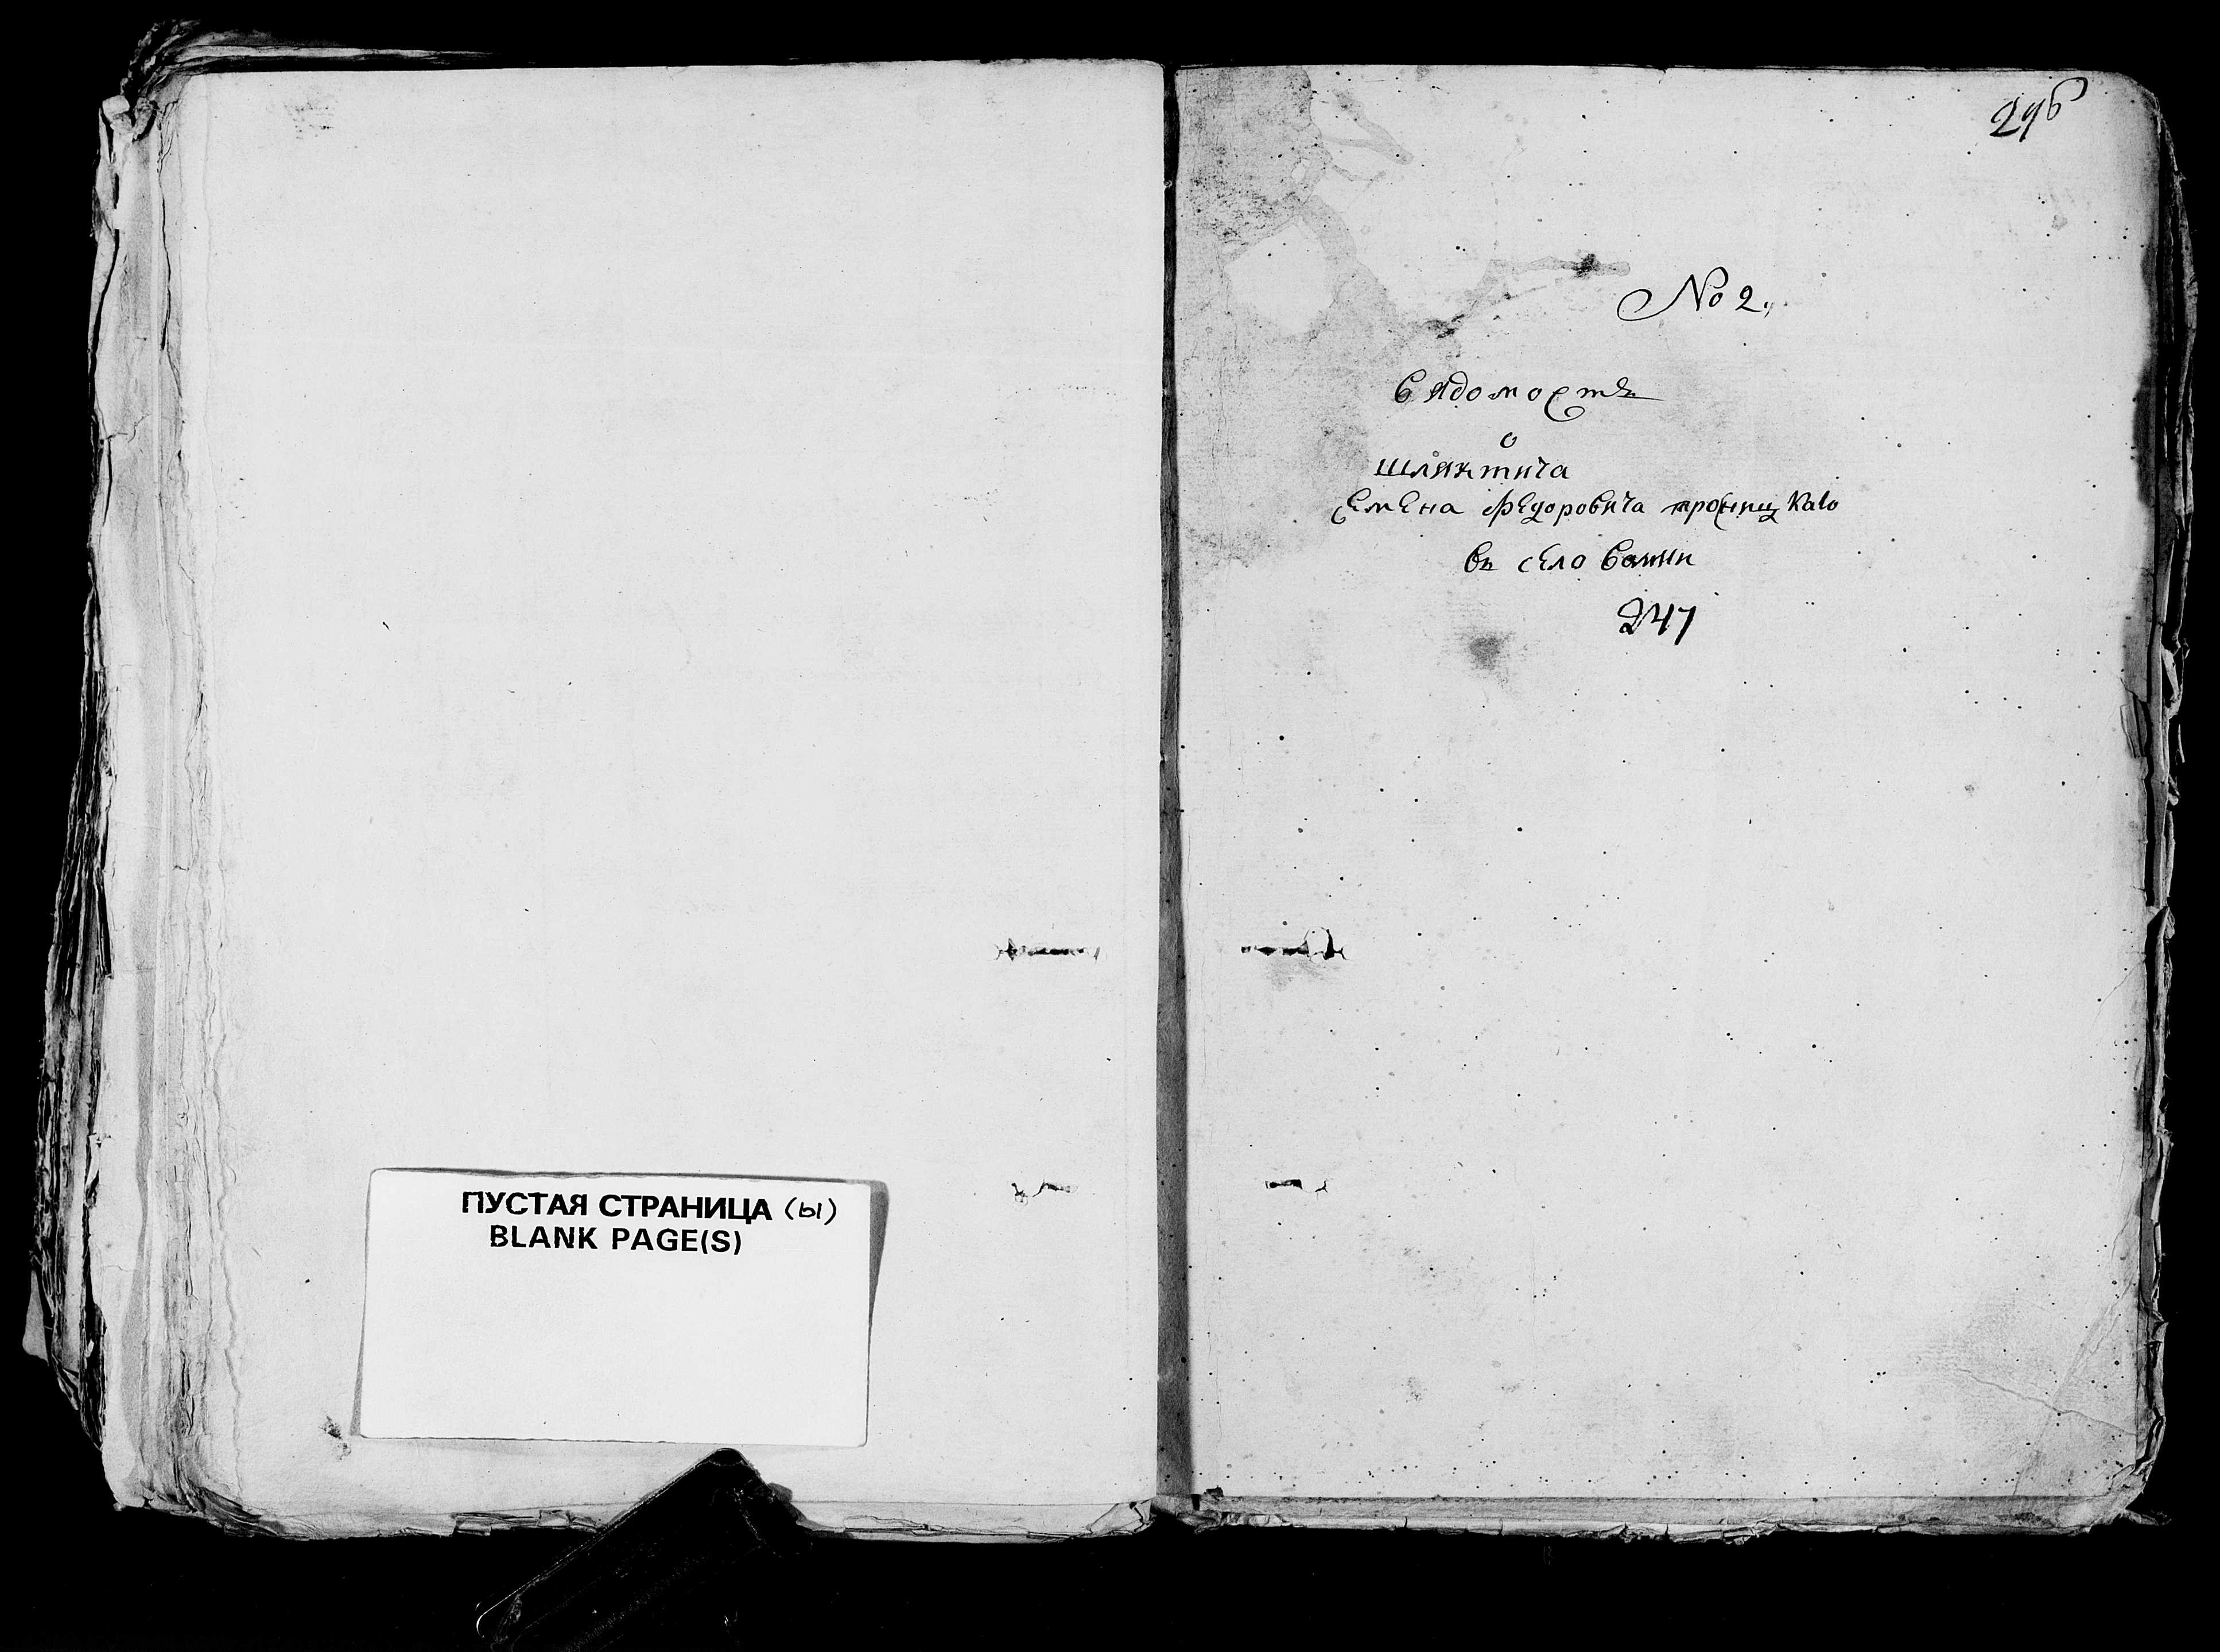 ПУСТАЯ СТРАНИЦА (ы)
BLANK PAGE(S)
296
No 2.
Вядомость
о
шляхтича
Семена Федоровича
въ село
247